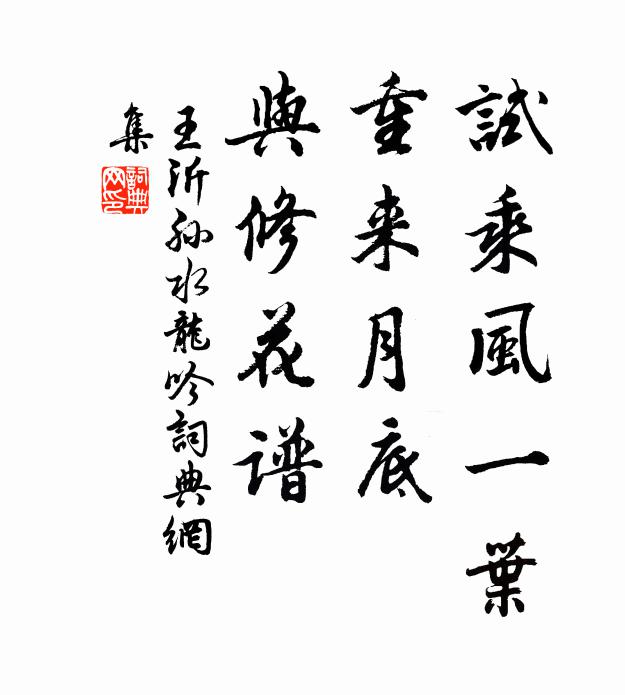 試乘風一葉
重来月底
與修花譜
王沂孫水龍吟詞典網
集
詞典
网印